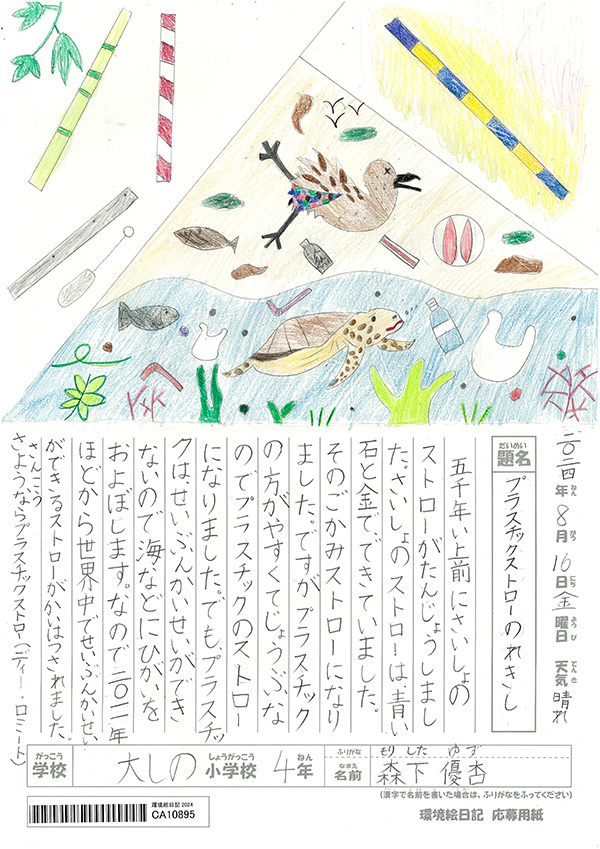 二〇二四年8月16日金曜日 天気晴れ
ねん がつ にち ようび てんき
だいめい
題名 プラスチックストローのれきし
五千年い上前にさいしょの
ストローがたんじょうしまし
た。さいしょのストローは青い
石と金で、できていました。
そのごかみストローになり
ました。ですがプラスチック
の方がやすくてじょうぶな
のでプラスチックのストロー
になりました。でも、プラスチッ
クは、せいぶんかいせいができ
ないので海などにひがいを
およぼします。なので二〇二一年
ほどから世界中でせいぶんかいせい
ができるストローがかいはつされました。
さんこう
さようならプラスチックストロー(ディー・ロミート)
がっこう しょうがっこう ねん
学校 大しの小学校 4年
ふりがな もりした ゆず
なまえ
名前 森下 優杏
(漢字で名前を書いた場合は、ふりがなをふってください)
環境絵日記 2024
CA10895
環境絵日記 応募用紙